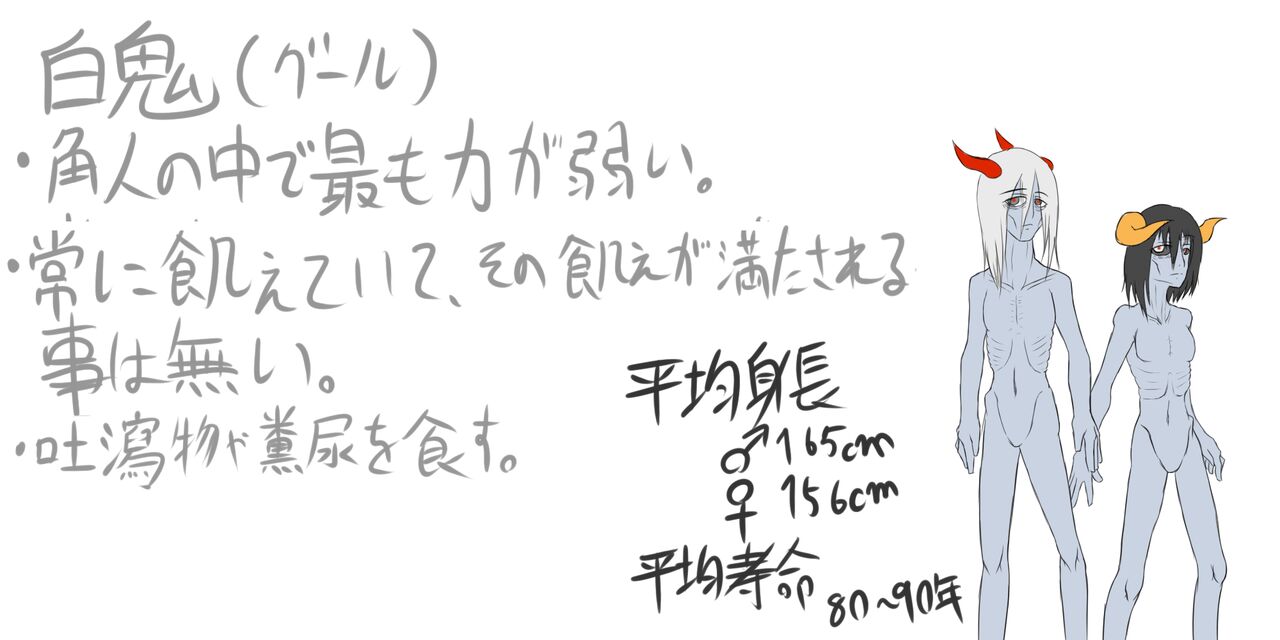 白鬼(グール)
・角人の中で最も力が弱い。
・常に飢えていて、その飢えが満たされる
事は無い。
・吐瀉物や糞尿を食す。
平均身長
♂165cm
♀156cm
平均寿命
80~90年